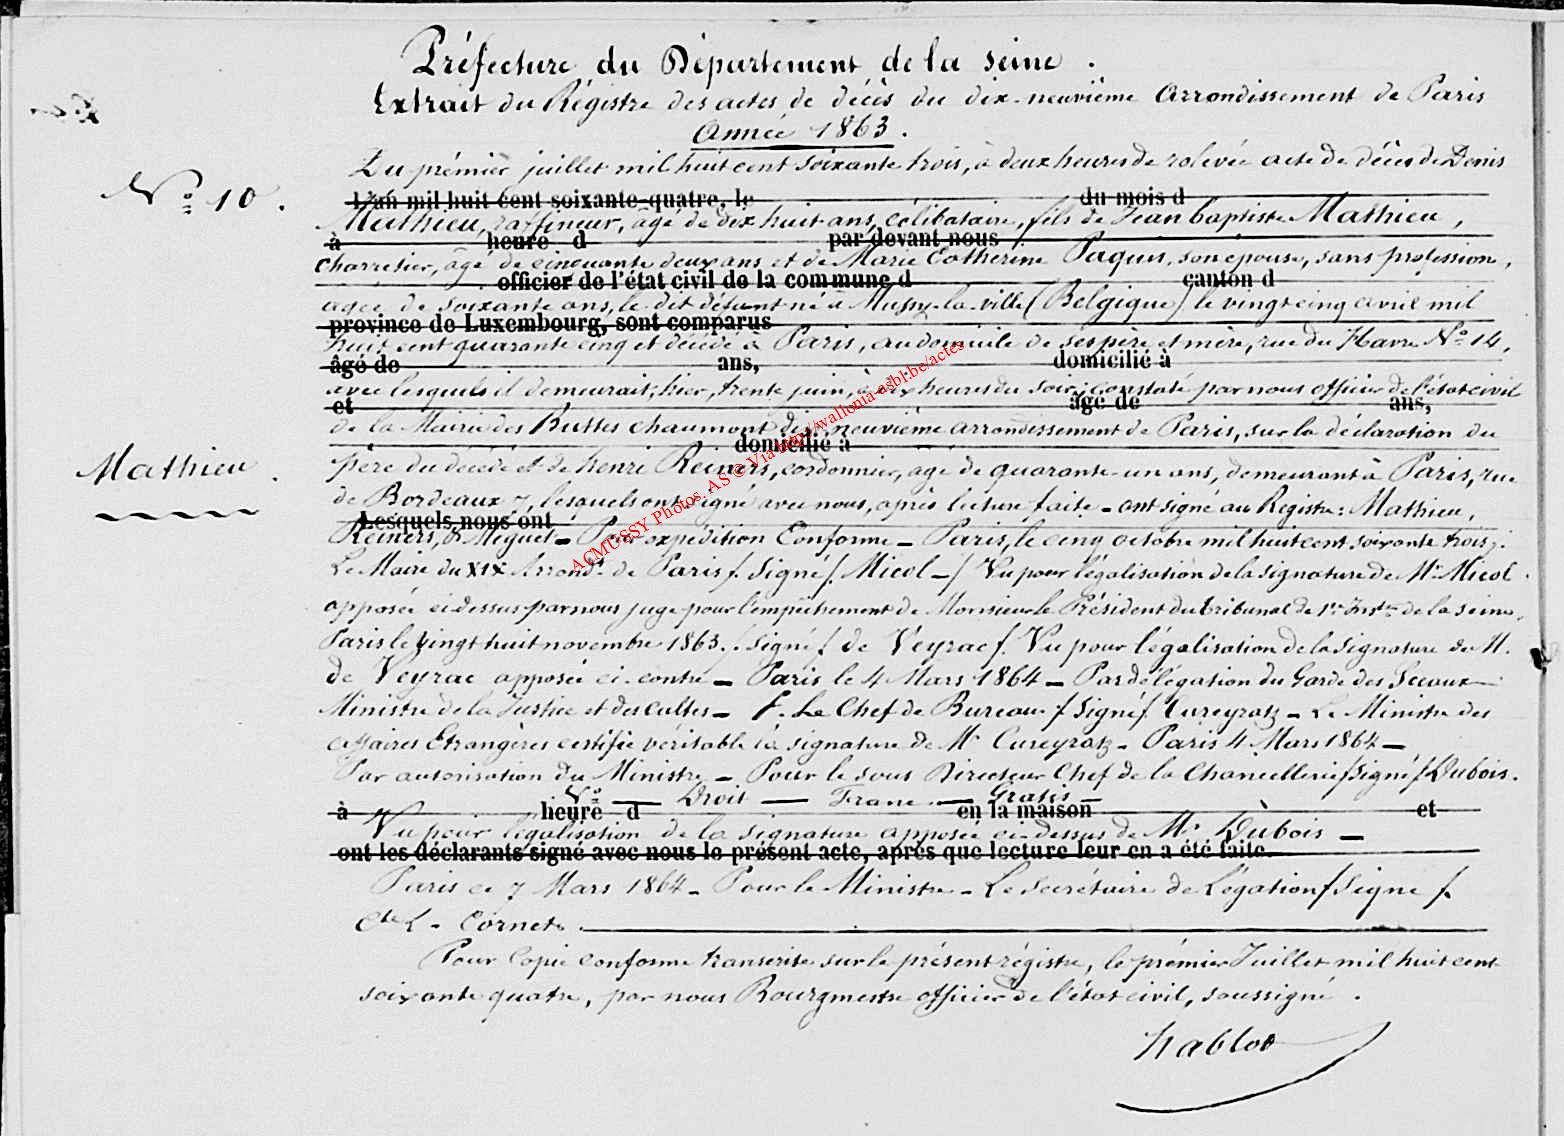 Préfecture du Département de la Seine.
Extrait du Régistre des actes de décès du dix-neuvième Arrondissement de Paris
Année 1863.
Du prémier juillet mil huit cent soixante trois, à deux heures de relevée acte de décès de Denis
N° 10.
L'an mil huit cent soixante-quatre, le du mois d
Mathieu, raffineur, âgé de dix huit ans, célibataire, fils de Jean baptiste Mathieu,
à heure d par devant nous
charretier, âgé de cinquante deux ans et de Marie Catherine Paquis, son épouse, sans profession,
officier de l'état civil de la commune d canton d
agée de soixante ans, le dit défunt né à Mussy-la-ville (Belgique) le vingt cinq avril mil
province de Luxembourg, sont comparus
huit cent quarante cinq et décédé à Paris, au domicile de ses père et mère, rue du Havre N° 14,
âgé de ans, domicilié à
avec lesquels il demeurait, hier, trente juin, à dix heures du soir; constaté par nous officier de l'état civil
et âgé de ans,
de la Mairie des Buttes chaumont dix-neuvième arrondissement de Paris, sur la déclaration du
domicilié à
Mathieu.
père du décédé et de henri Reiners, cordonnier, age de quarante-un ans, demeurant à Paris, rue
de Bordeaux 7, lesquels ont signé avec nous, après lecture faite - ont signé au Régistre: Mathieu,
Lesquels nous ont
Reiners, & Meguet - Pour expédition Conforme - Paris, le cinq octobre mil huit cent soixante trois;
Le Maire du XIX Arrondt de Paris /. Signé /. Micol - / Vu pour légalisation de la signature de Mr Micol
apposée ci dessus par nous juge pour l'empêchement de Monsieur le Président du tribunal de 1re Instce de la Seine,
Paris le vingt huit novembre 1863. /. signé /. de Veyrac /. Vu pour légalisation de la signature de M.
de Veyrac apposée ci-contre - Paris le 4 Mars 1864 - Par délégation du Garde des Sceaux
Ministre de la Justice et des cultes - Le Chef de Bureau / Signé /. Cureyratz - Le Ministre des
affaires Etrangères certifie véritable la signature de Mr Cureyratz - Paris 4 Mars 1864 -
Par autorisation du Ministre - Pour le sous Directeur Chef de la Chancellerie / signé / Dubois.
V° - Droit - Franc - Gratis -
à heure d en la maison et
Vu pour légalisation de la signature apposée ci-dessus de Mr Dubois -
ont les déclarants signé avec nous le présent acte, après que lecture leur en a été faite.
Paris ce 7 Mars 1864 - Pour le Ministre - Le secrétaire de Légation / signé /.
Cte L. Cornet.
Pour Copie conforme transcrite sur le présent régistre, le prémier Juillet mil huit cent
soixante quatre, par nous Bourgmestre officier de l'état civil, soussigné.
hablot
ACMUSSY Photos. AS © Via http://wallonia-asbl.be/actes